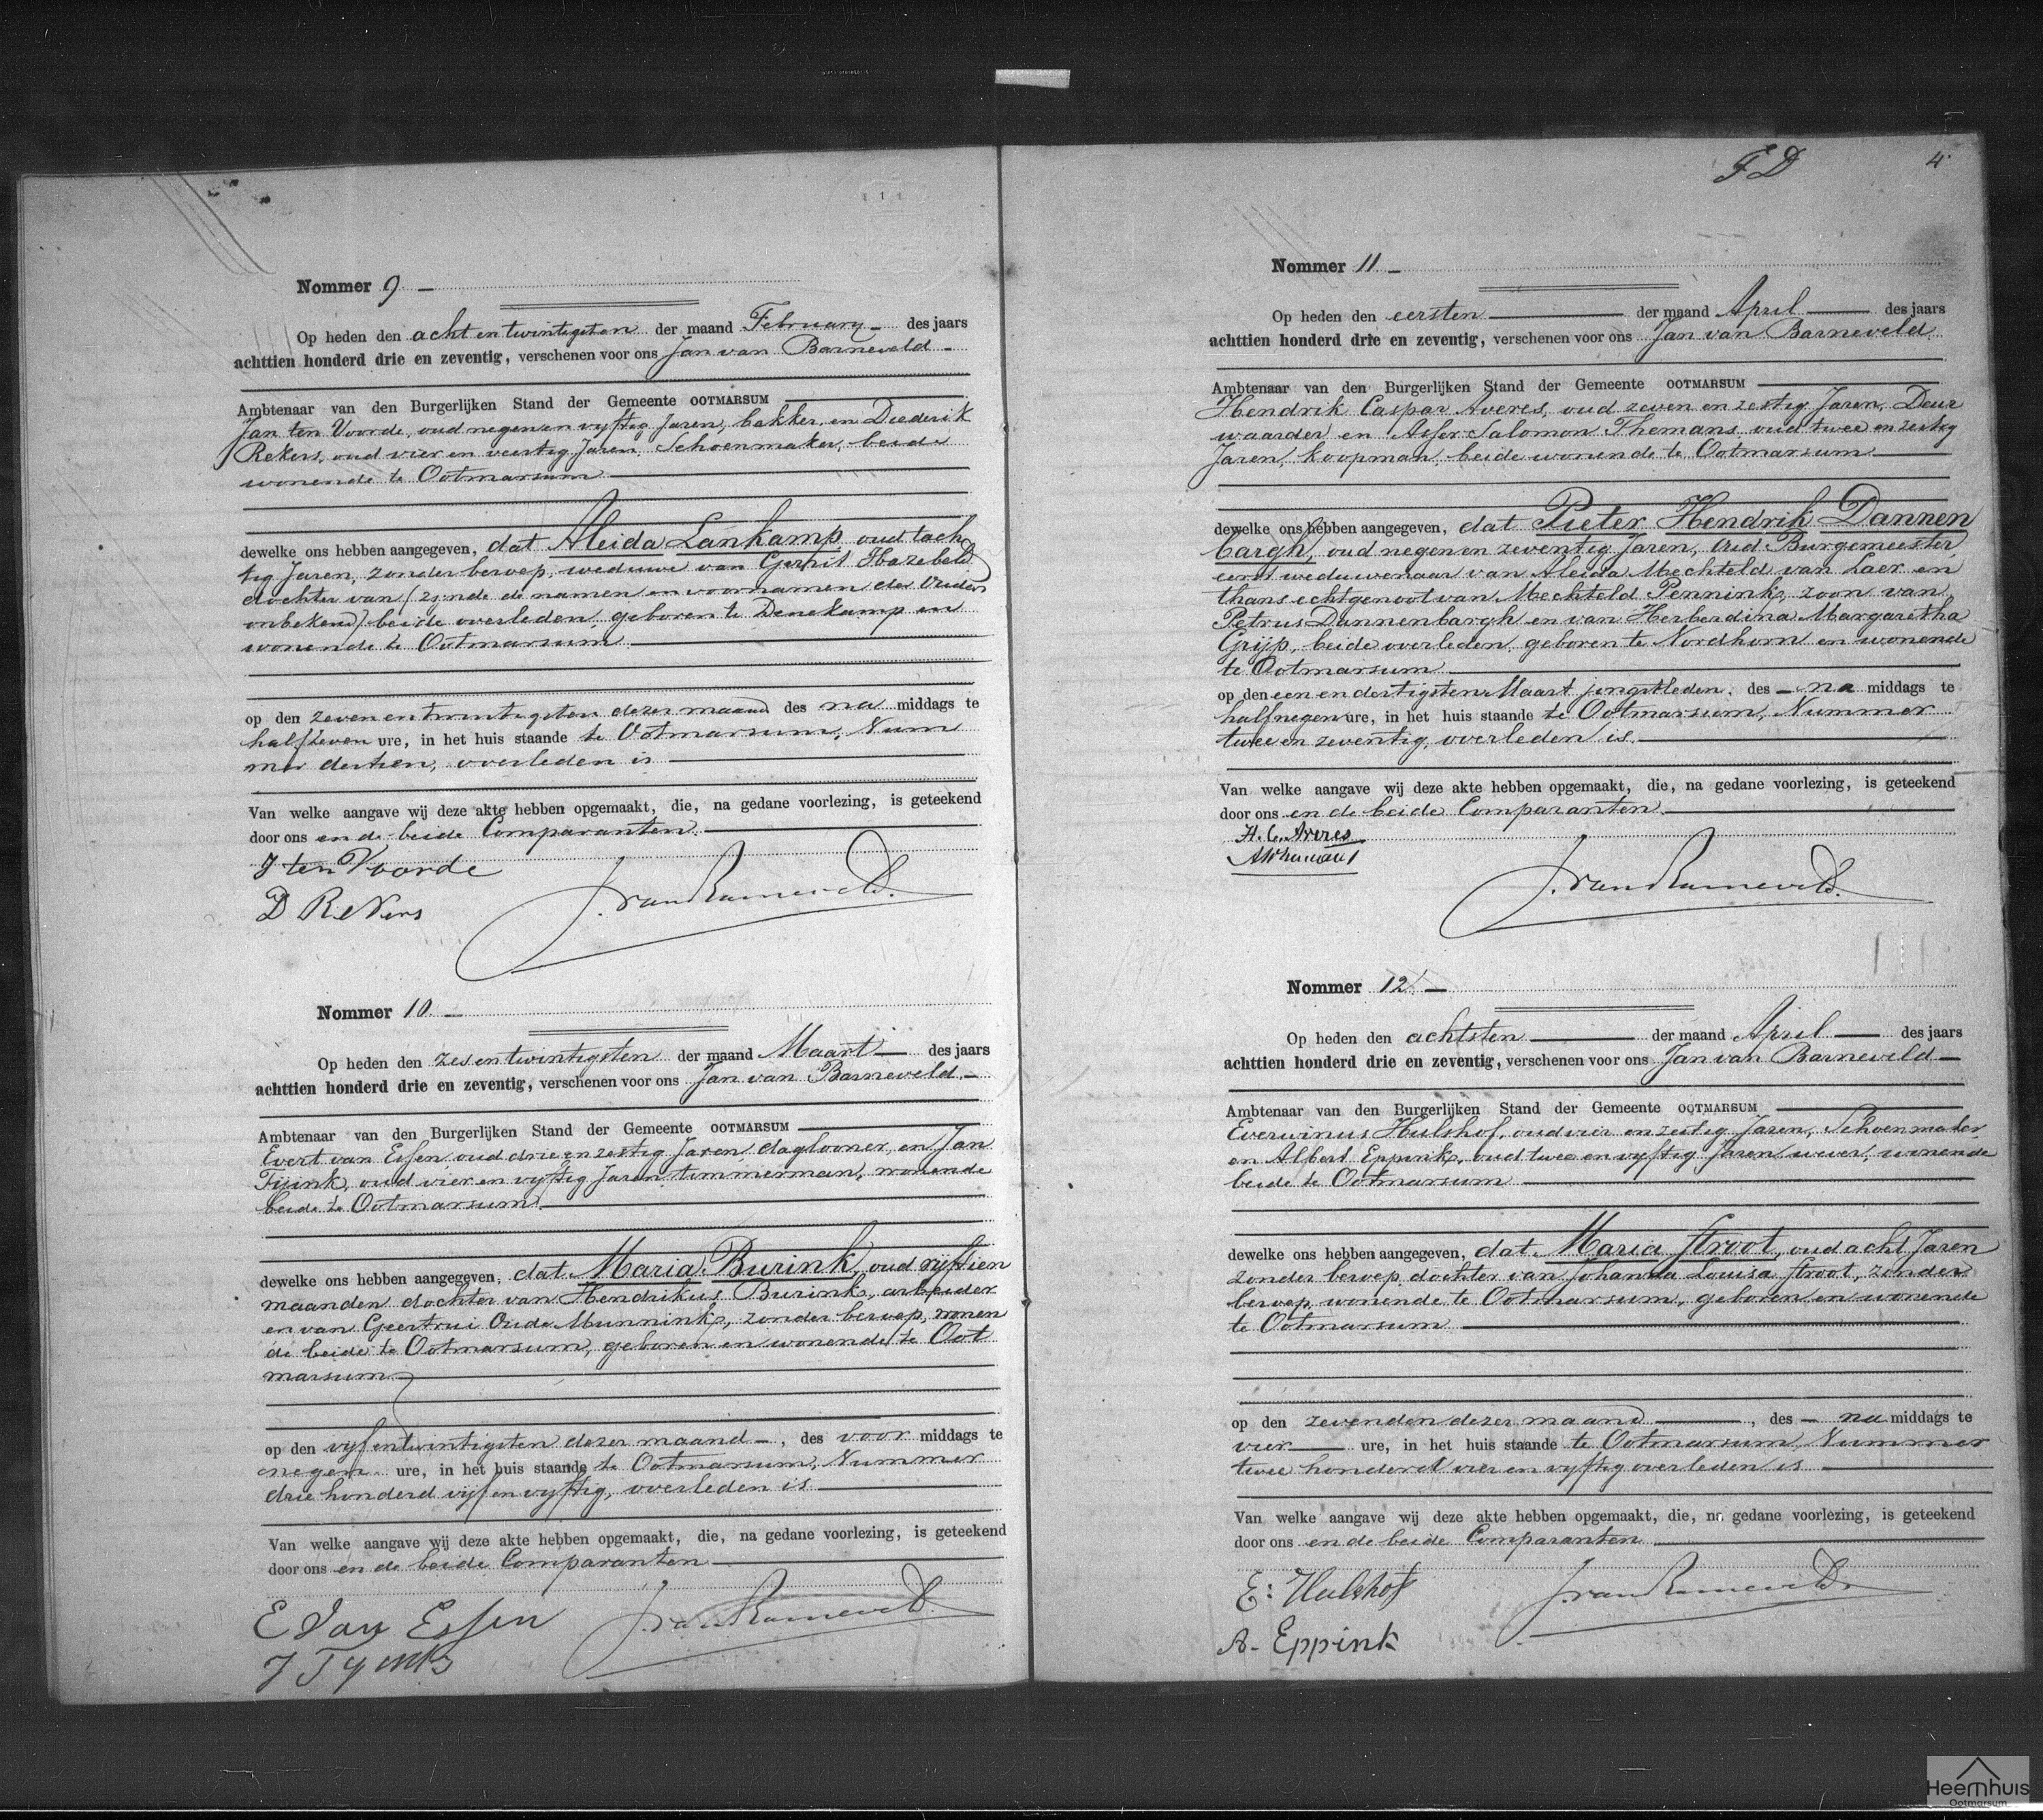 Nommer 9 -
Op heden den acht en twintigsten der maand February - des jaars
achttien honderd drie en zeventig, verschenen voor ons Jan van Barneveld -
Ambtenaar van den Burgerlijken Stand der Gemeente OOTMARSUM
Jan ten Voorde, oud negen en vyftig Jaren, bakker, en Diederik
Rekers, oud vier en veertig Jaren, Schoenmaker, beide
wonende te Ootmarsum
dewelke ons hebben aangegeven, dat Aleida Lankamp oud tach
tig Jaren, zonder beroep, weduwe van Gerrit Hazebeld
dochter van (zynde de namen en voornamen der Ouders
onbekend) beide overleden, geboren te Denekamp en
wonende te Ootmarsum
op den zeven en twintigsten dezer maand des na middags te
half zeven ure, in het huis staande te Ootmarsum, Num
mer dertien, overleden is
Van welke aangave wij deze akte hebben opgemaakt, die, na gedane voorlezing, is geteekend
door ons en de beide Comparanten.
J ten Voorde
D Rekers
J. van Barneveld.
Nommer 10. -
Op heden den zes en twintigsten der maand Maart - des jaars
achttien honderd drie en zeventig, verschenen voor ons Jan van Barneveld. -
Ambtenaar van den Burgerlijken Stand der Gemeente OOTMARSUM
Evert van Essen, oud drie en zestig Jaren, daglooner, en Jan
Tijink, oud vier en vyftig Jaren timmerman, wonende
beide te Ootmarsum.
dewelke ons hebben aangegeven, dat Maria Burink, oud vyftien
maanden dochter van Hendrikus Burink, arbeider
en van Geertrui Oude Munnink, zonder beroep, wonen
de beide te Ootmarsum, geboren en wonende te Oot
marsum
op den vyf en twintigsten dezer maand -, des voor middags te
negen ure, in het huis staande te Ootmarsum, Nummer
drie honderd vijf en vyftig, overleden is
Van welke aangave wij deze akte hebben opgemaakt, die, na gedane voorlezing, is geteekend
door ons en de beide Comparanten
E van Essen
J. van Barneveld.
F D 4
Nommer 11 -
Op heden den eersten der maand April des jaars
achttien honderd drie en zeventig, verschenen voor ons Jan van Barneveld.
Ambtenaar van den Burgerlijken Stand der Gemeente OOTMARSUM
Hendrik Caspar Averes, oud zeven en zestig Jaren, Deur
waarder en Asser Salomon Themans oud twee en zestig
Jaren, koopman, beide wonende te Ootmarsum
dewelke ons hebben aangegeven, dat Pieter Hendrik Dannen
bargh, oud negen en zeventig Jaren, Oud-Burgemeester
eerst weduwenaar van Aleida Mechteld van Laer en
thans echtgenoot van Mechteld Pennink, zoon van
Petrus Dannenbargh en van Herberdina Margaretha
Grijp, beide overleden, geboren te Nordhorn en wonende
te Ootmarsum
op den een en dertigsten Maart jongstleden, des - na middags te
half negen ure, in het huis staande te Ootmarsum, Nummer
twee en zeventig, overleden is.
Van welke aangave wij deze akte hebben opgemaakt, die, na gedane voorlezing, is geteekend
door ons en de beide Comparanten.
H. C. Averes
J. van Barneveld.
Nommer 12. -
Op heden den achtsten der maand April des jaars
achttien honderd drie en zeventig, verschenen voor ons Jan van Barneveld -
Ambtenaar van den Burgerlijken Stand der Gemeente OOTMARSUM
Everwinus Hulshof, oud vier en zestig Jaren, Schoenmaker
en Albert Eppink, oud twee en vyftig Jaren, wever, wonende
beide te Ootmarsum
dewelke ons hebben aangegeven, dat Maria Stroot, oud acht Jaren
zonder beroep dochter van Johanna Louisa Stroot, zonder
beroep, wonende te Ootmarsum, geboren en wonende
te Ootmarsum
op den zevenden dezer maand, des - na middags te
vier ure, in het huis staande te Ootmarsum, Nummer
twee honderd vier en vyftig overleden is
Van welke aangave wij deze akte hebben opgemaakt, die, na gedane voorlezing, is geteekend
door ons en de beide Comparanten
E: Hulshof
J. van Barneveld
A- Eppink
Heemhuis
Ootmarsum